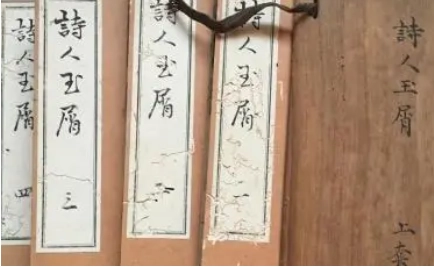 詩人玉屑
上套
詩人玉屑 一
詩人玉屑 二
詩人玉屑 三
詩人玉屑 四